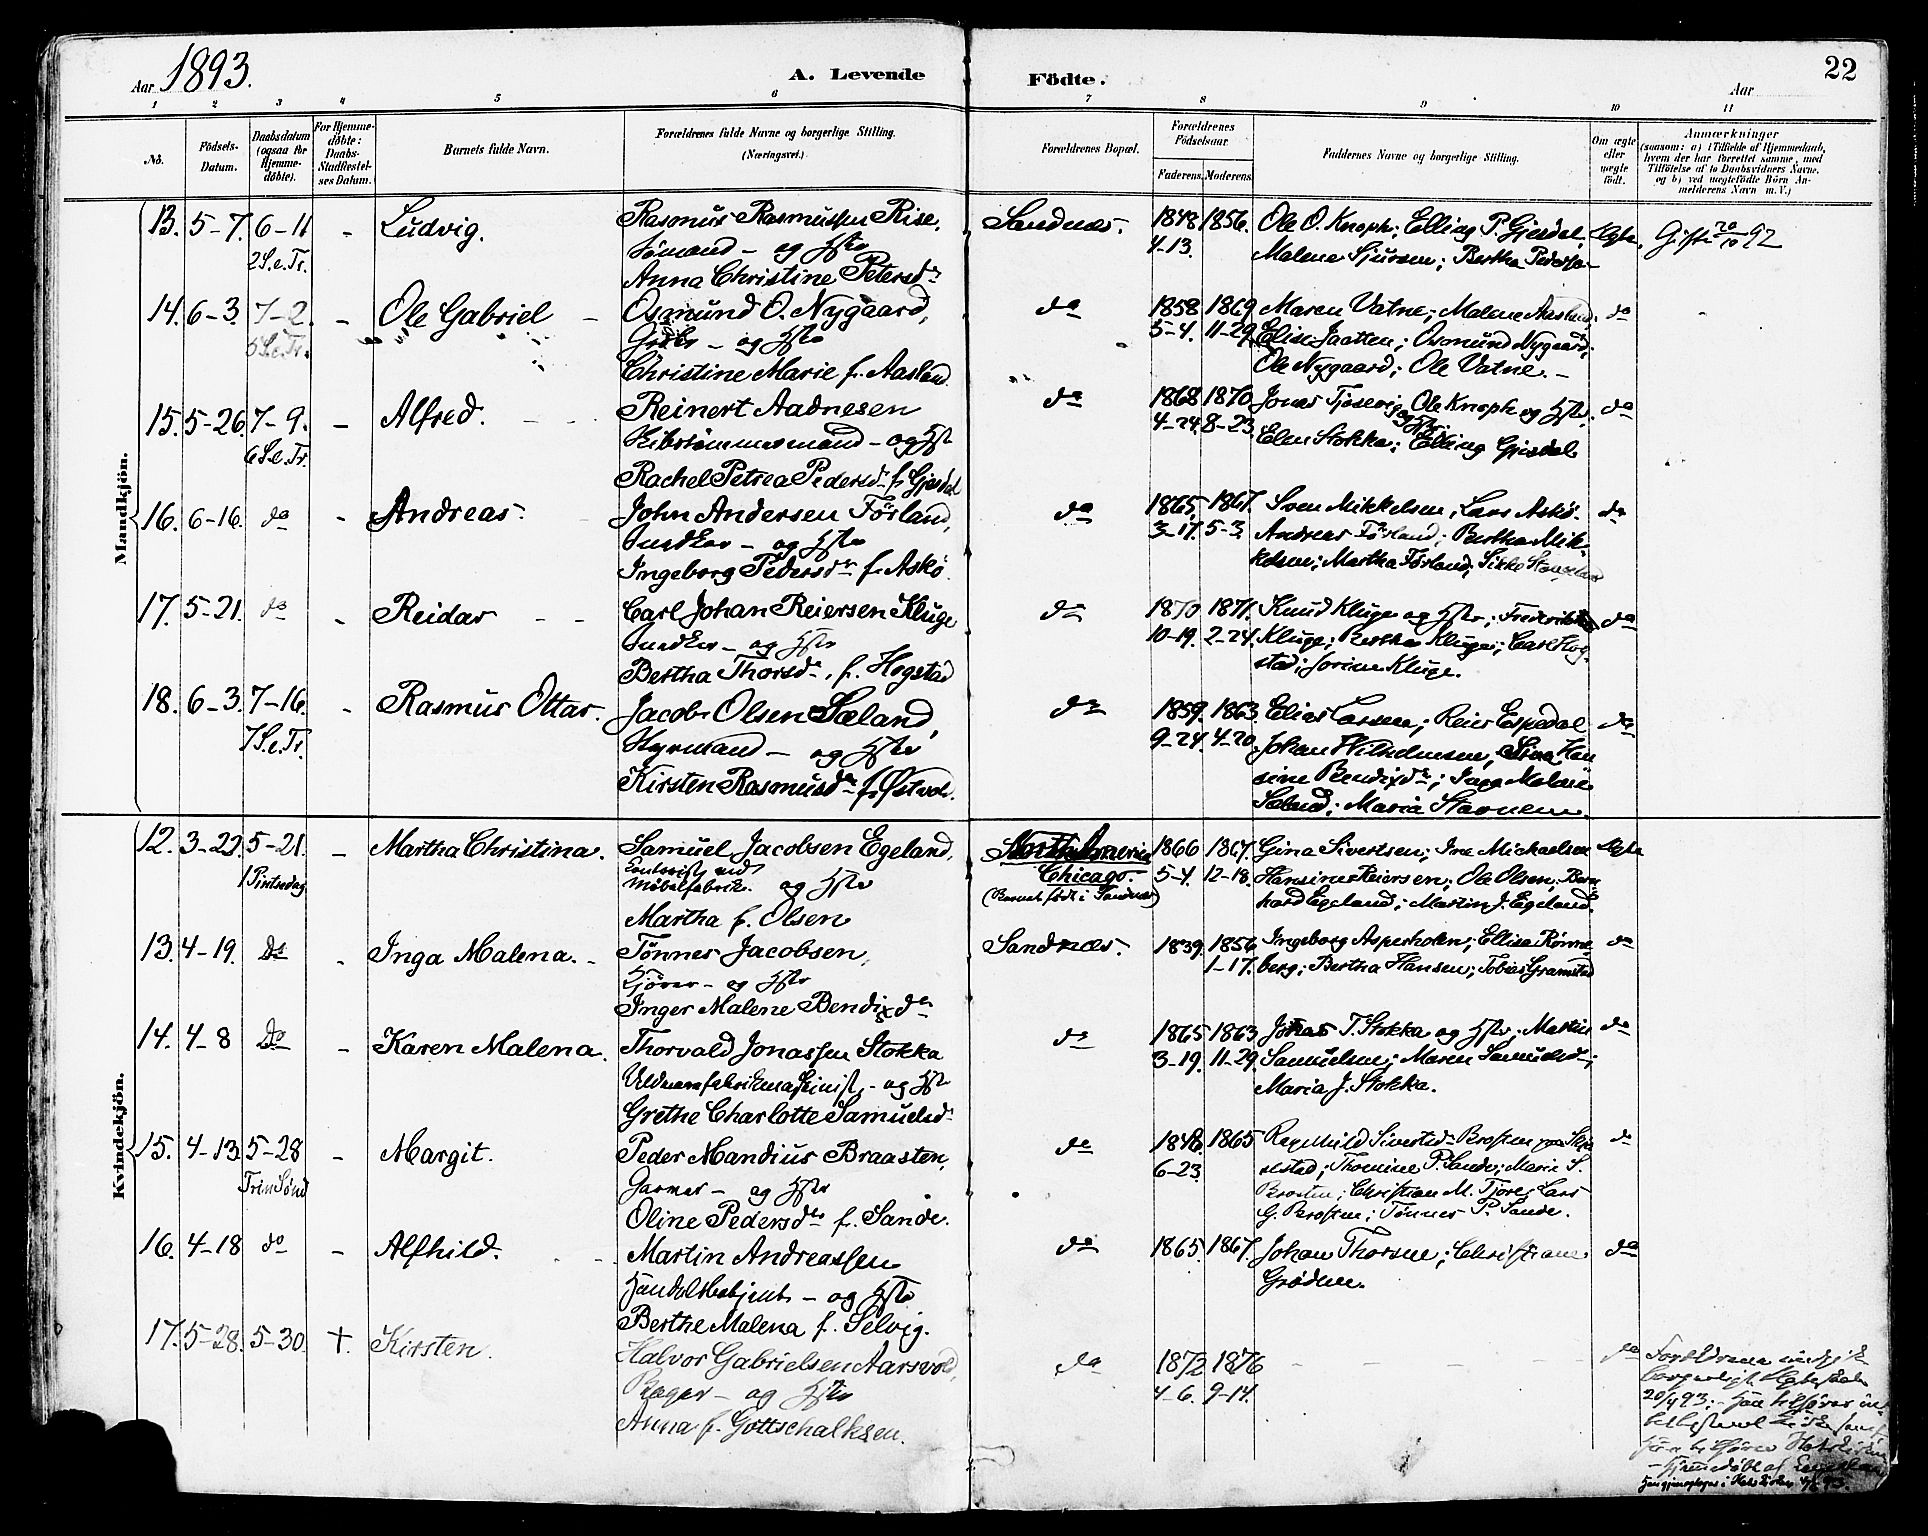 Aar 1893.
A. Levende Födte.
Aar
22
1 2 3 4 5 6 7 8 9 10 11
No.
Födsels-Datum.
Daabsdatum (ogsaa for Hjemme-döbte).
For Hjemme-döbte: Daabs-Stadfæstel-ses Datum.
Barnets fulde Navn.
Forældrenes fulde Navne og borgerlige Stilling. (Næringsvei.)
Forældrenes Bopæl.
Forældrenes Födselsaar.
Faderens. Moderens.
Faddernes Navne og borgerlige Stilling.
Om ægte eller uægte født.
Anmærkninger
(saasom: a) i Tilfælde af Hjemmedaab, hvem der har forrettet samme, med Tilföielse af to Daabsvidners Navne, og b) ved uægtefödte Börn An-melderens Navn m. V.)
Mandkjön.
13. 5-7. 6-11 - Ludvig. Rasmus Rasmussen Rise, Sandnæs. 1848 1856. Ole O. Knoph; Elling P. Gjesdal, Ægte. Gift 20/10 92
2 S.e.Tr. Sømand - og Hstr 4-13. Malene Sjursen; Bertha Peders
Anna Christine Petersdr
14. 6-3. 7-2. - Ole Gabriel Osmund O. Nygaard, do 1858 1869 Maren Vatne; Malene Aasland; do
5 S.e.Tr. og Hstr 5-4. 11-29. Elise Jaatten; Osmund Nygaard;
Christine Marie f. Aasland. Ole Nygaard; Ole Vatne.
15. 5-26. 7-9. - Alfred. Reinert Aadnesen do 1868 1870 Jonas Tjøsevig og Hstr; Ole Knoph og Hstr; do
6 S.e.Tr. Skibstømmermand - og Hstr 4-24. 8-23. Elen Stokka; Elling Gjesdal
Rachel Petrea Pedersdr f. Gjesdal
16. 6-16. do - Andreas. John Andersen Førland, do 1865 1867. Sven Mikkelsen; Lars Askø. do
Snedker - og Hstr 3-17. 5-3. Andreas Førland; Bertha Mik-
Ingeborg Pedersdr f. Askø. kelsen; Martha Førland;
17. 5-21. do - Reidar Carl Johan Reiersen Kluge do 1870 1871. Knud Kluge og Hstr; do
Snedker - og Hstr 10-19. 2-24. Kluge; Bertha Kluge; Carl Hog-
Bertha Thorsdr, f. Hogstad stad; Jorine Kluge.
18. 6-3. 7-16. - Rasmus Ottar. Jacob Olsen Sæland, do 1859. 1863. Elias Larsen; Reier Espedal do
7 S.e.Tr. Hyrmand - og Hstr 9-24. 4-20. Johan Wilhelmsen; Stina Han
Kirsten Rasmusdr f. Østvold. sine Bendixdr; Inga Malene
Sæland; Maria Stavnem.
Kvindekjön.
12. 3-22. 5-21. - Martha Christina. Samuel Jacobsen Egeland, North America 1866 1867. Gina Sivertsen; Ine Mickaelsen Ægte
1 Pintsedag ved Møbelfabrik. og Hstr Chicago. 5-4. 12-18. Hansine Reiersen; Ole Olsen; Bern
Martha f. Olsen (Barnet født i Sandnæs) hard Egeland; Martin J. Egeland.
13. 4-19. do - Inga Malena. Tønnes Jacobsen, Sandnæs. 1839. 1856 Ingeborg Aspersholen; Ellisa Rønne do
Kjører - og Hstr 1-17. berg; Bertha Hansen; Tobias Gramstad
Inger Malene Bendixdr
14. 4-8 do - Karen Malena. Thorvald Jonassen Stokka do 1865 1863 Jonas T. Stokka og Hstr; Martin do
Uldvarefabrikmaskinist - og Hstr 3-19. 11-29. Samuelsen; Maren Samuelsdr;
Grethe Charlotte Samuelsdr Maria J. Stokka.
15. 4-13 5-28 - Margit. Peder Mandius Braasten, do 1848. 1865 Ragnhild Sivertsdr Brosten do
Trin Sønd Garver - og Hstr 6-23. Thomine P. Sande; Marie S.
Oline Pedersdr f. Sande. Brosten; Christian M. Tjore; Lars
G. Brosten; Tønnes P. Sande.
16. 4-18 do - Alfhild. Martin Andreassen do 1865. 1867. Johan Thorsen; Christiane do
Handelsbetjent - og Hstr Grødem.
Berthe Malena f. Selvig.
17. 5-28. 5-30. + Kirsten. Halvor Gabrielsen Aarsvold, do 1872 1876 - - - do Forældrene indgik
Bager - og Hstr 4-6. 9-14. borgerligt Ægteskab
Anna f. Gottschalksen. 20/4 93.